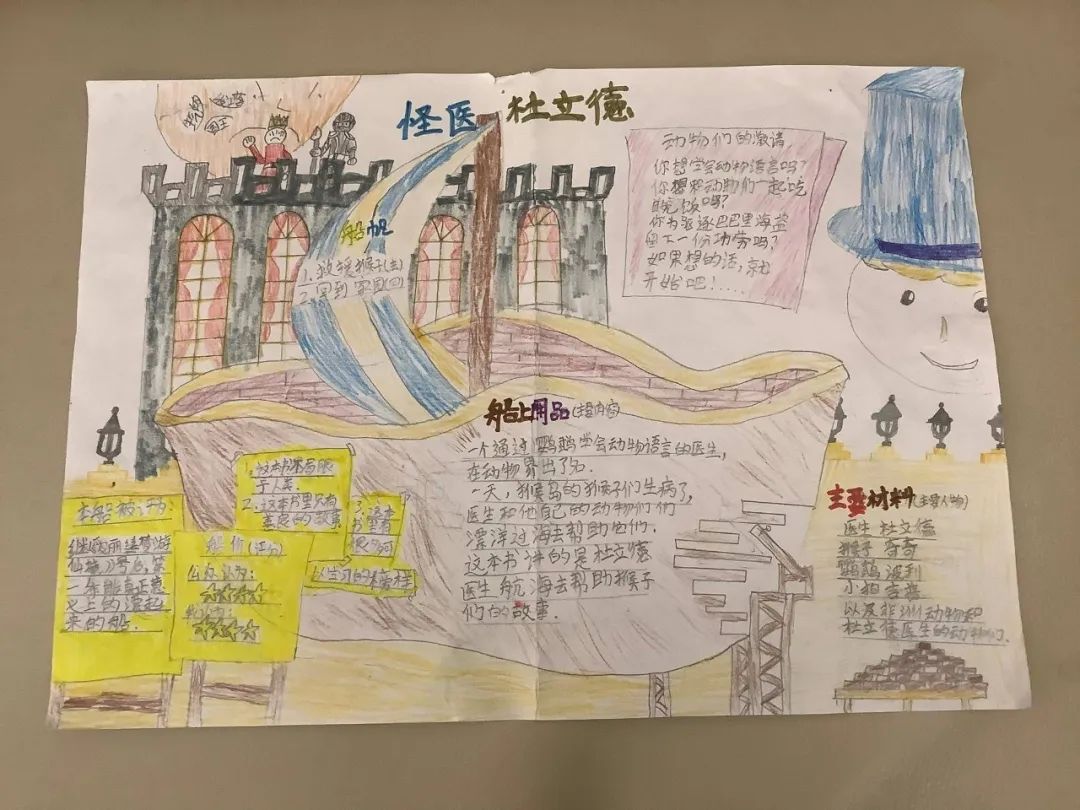 怪医 杜立德
国王
动物们的邀请
你想学会动物语言吗?
你想和动物们一起吃
晚饭吗?
你为驱逐巴巴里海盗
留下一份功劳吗?
如果想的话,就
开始吧!.....
船帆
1.救援猴子(去)
2.回到家园(回)
船上用品(主要内容)
一个通过鹦鹉学会动物语言的医生,
在动物界出了名.
一天,猴岛的猴子们生病了,
医生和他自己的动物们
漂洋过海去帮助它们.
这本书讲的是杜立德
医生航海去帮助猴子
们的故事.
1.这本书不局限
于人类.
2.这本书里只有
善良的故事
3.这本
书里有
很多可
以学习的
本船被评为
一条能真正意
义上的漂起
来的船.
船价(评价)
公众认为:
☆☆☆☆☆
☆☆☆☆
主要材料(主要人物)
医生 杜立德
猴子 奇奇
鹦鹉 波利
小狗 吉普
以及非洲动物和
杜立德医生的动物们.